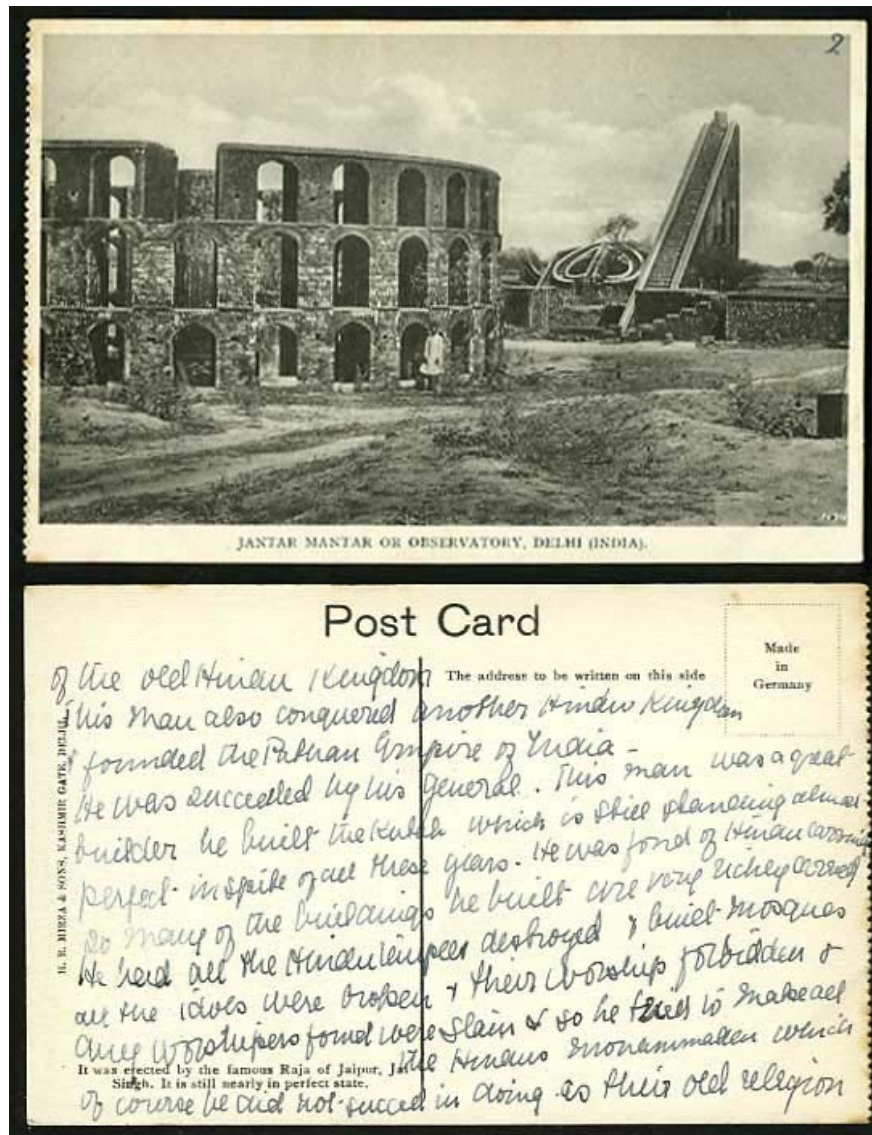 2
JANTAR MANTAR OR OBSERVATORY, DELHI (INDIA).
Post Card
The address to be written on this side
Made
in
Germany
H. R. MIRZA & SONS, KASHMIR GATE, DELHI.
of the old Hindu Kingdom
This man also conquered another Hindu Kingdom
& founded the Pathan Empire of India -
He was succeeded by his General. This man was a great
builder he built the Kutab which is still standing almost
perfect in spite of all these years. He was fond of Hindau carving
so many of the buildings he built are very richly carved
He had all the Hindu temples destroyed & built Mosques
all the idols were broken & their worship forbidden &
any worshipers found were slain & so he tried to make all
the Hindus Mohammaden which
It was erected by the famous Raja of Jaipur, Jai
Singh. It is still nearly in perfect state.
of course he did not succed in doing as their old religion